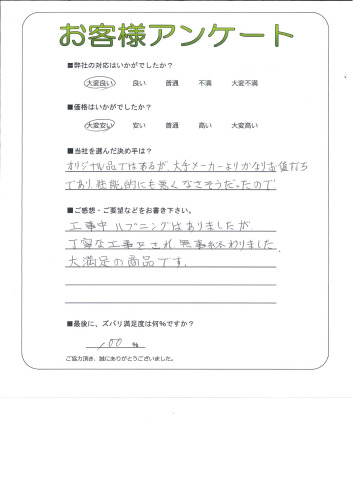 お客様アンケート
■弊社の対応はいかがでしたか?
大変良い 良い 普通 不満 大変不満
■価格はいかがでしたか?
大変安い 安い 普通 高い 大変高い
■当社を選んだ決め手は?
オリジナル品ではあるが、大手メーカーよりかなりお値打ち
であり、性能的にも悪くなさそうだったので
■ご感想・ご要望などをお書き下さい。
工事中ハプニングはありましたが
丁寧な工事をされ、無事終わりました。
大満足の商品です。
■最後に、ズバリ満足度は何%ですか?
100 %
ご協力頂き、誠にありがとうございました。